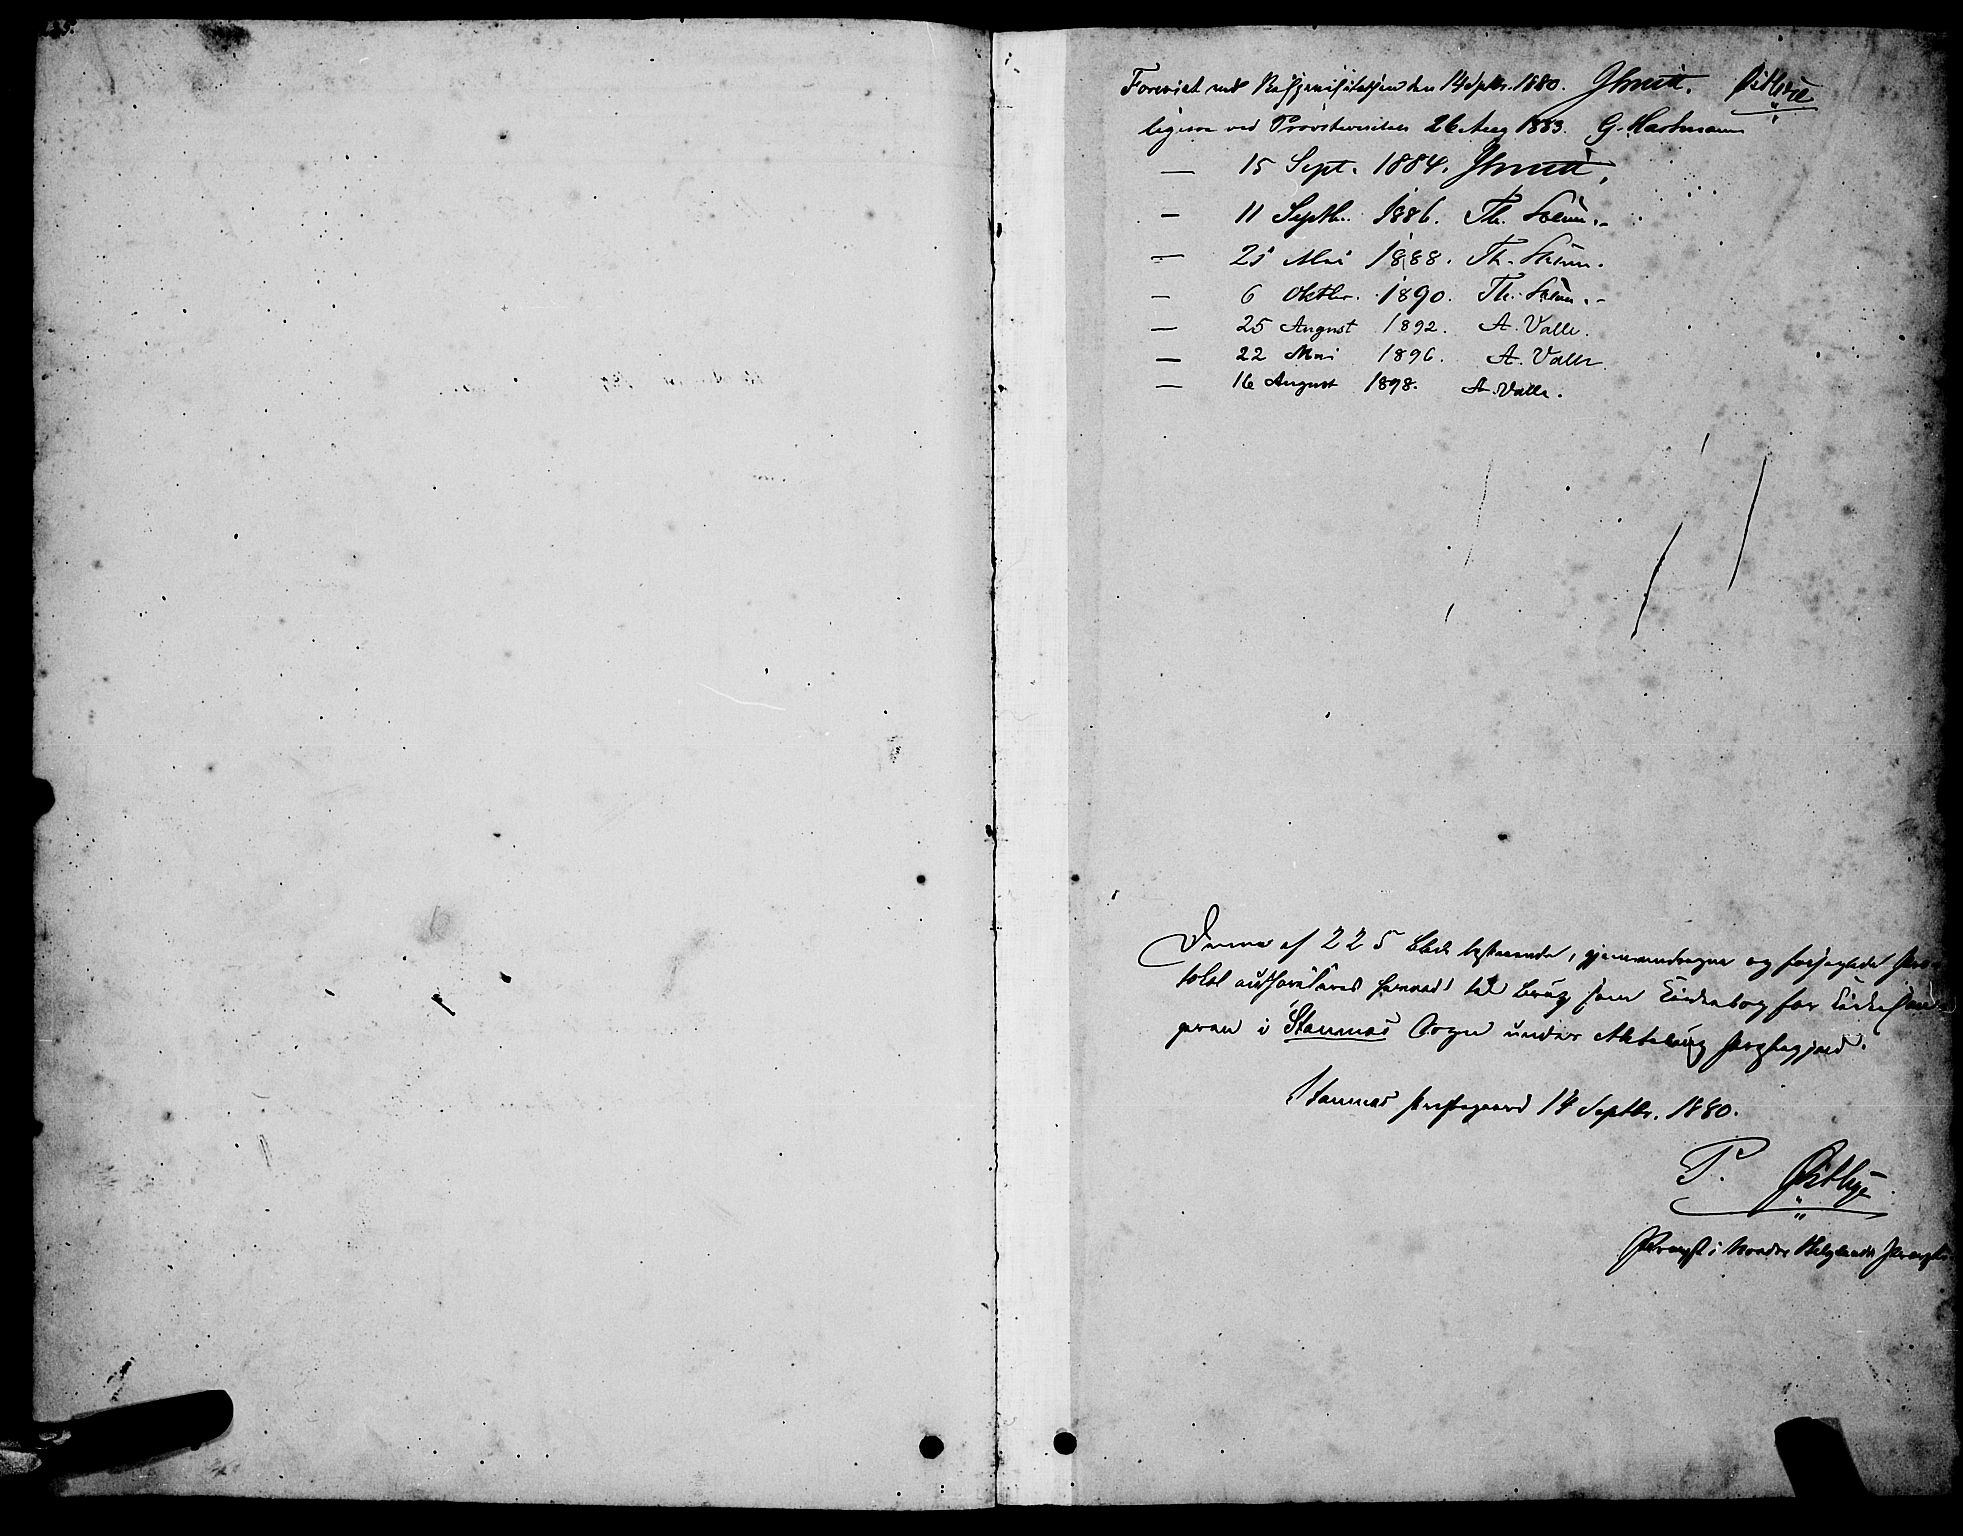 Forevist ved Bispevisitatsen den 14 Septbr. 1880. Østbye
ligesaa ved Provstevisitats 26 Aug 1883. G. Hartmann
— 15 Sept. 1884.
— 11 Septbr. 1886. Th.
— 25 Mai 1888. Th.
— 6 Oktbr. 1890. Th.
— 25 August 1892. A. Valle.
— 22 Mai 1896. A. Valle
— 16 August 1898. A. Valle.
Denne af 225 Blade bestaaende, gjennemdragne og forseglede Pro-
tokol authoriseres herved til Brug som Kirkebog for Kirkesan-
geren i Stamnes Sogn under Alstahaug Præstegjeld.
Stamnes Præstegaard 14 Septbr. 1880.
P. Østbye
Provst i Nordre Helgelands Provsti